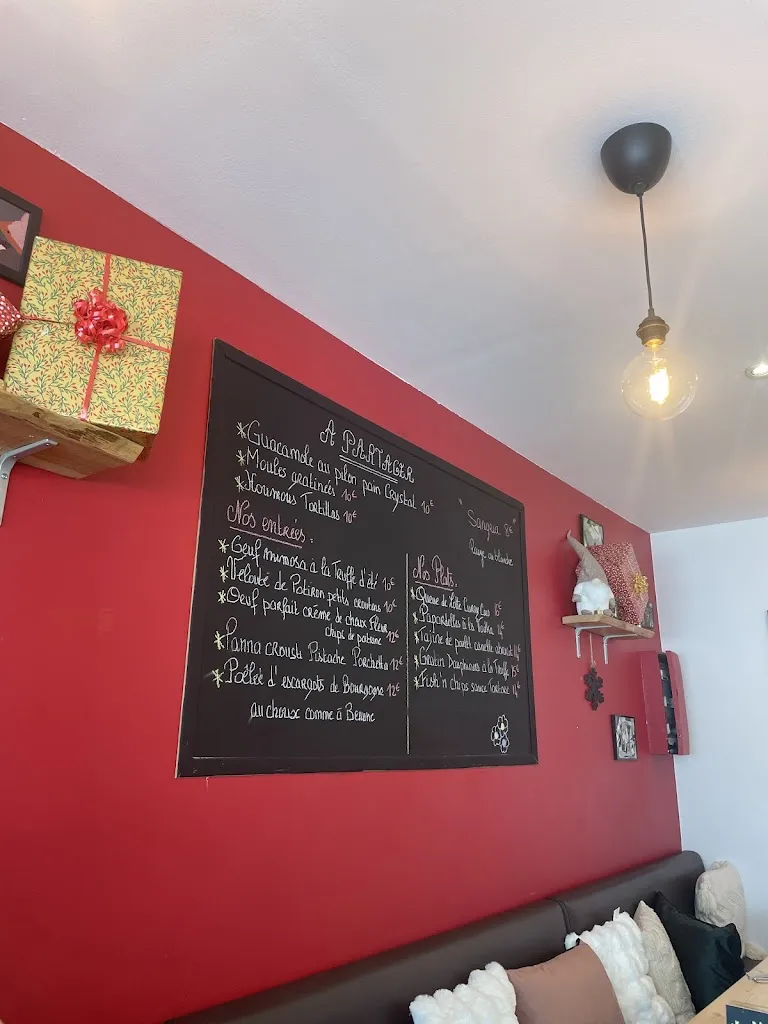 A PARTAGER
*Guacamole au pilon pain Crystal 10€
*Moules gratinées 10€
*Houmous Tortillas 10€
"Sangria 8€"
Nos entrées :
*Oeuf mimosa à la Truffe d'été 10€
*Velouté de Potiron petits croutons 10€
*Oeuf parfait crème de choux Fleur
chips de patate 12€
*Panna crousti Pistache Porchetta 12€
*Poêlée d'escargots de Bourgogne 12€
au choux comme à Beaune
Nos Plats.
*Queue de Lotte Curry Coco
*Papardelles à la
*Tajine de poulet
*Gratin Dauphinois à la Truffe
*Fish'n chips sauce Tartare